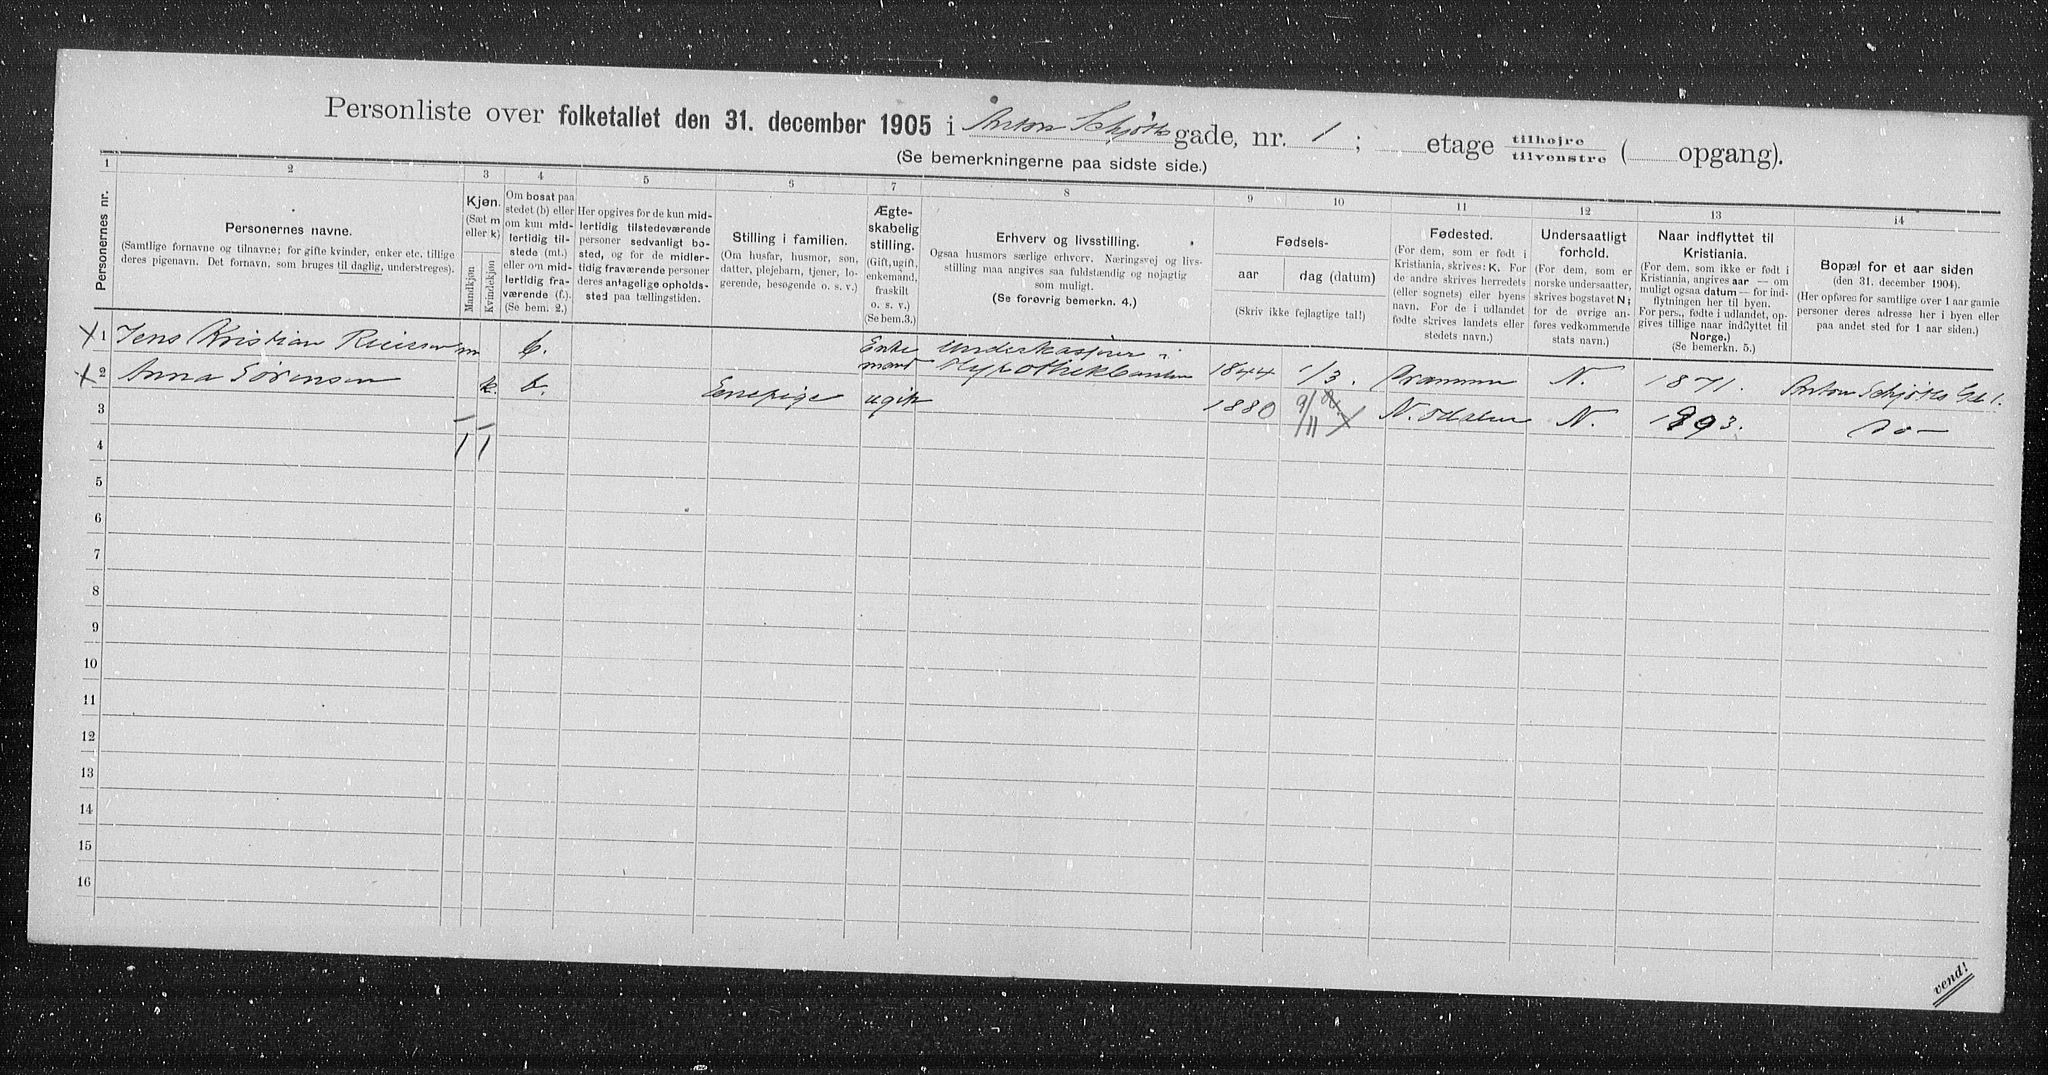 Personliste over folketallet den 31. december 1905 i Anton Schjøtts gade, nr. 1; etage tilhøjre tilvenstre ( opgang).
(Se bemerkningerne paa sidste side.)
1 2 3 4 5 6 7 8 9 10 11 12 13 14
Personernes nr.
Personernes navne.
(Samtlige fornavne og tilnavne; for gifte kvinder, enker etc. tillige
deres pigenavn. Det fornavn, som bruges til daglig, understreges).
Kjøn.
(Sæt m
eller k)
Mandkjøn
Kvindekjøn
Om bosat paa
stedet (b) eller
om kun mid-
lertidig til-
stede (mt.)
eller om mid-
lertidig fra-
værende (f.).
(Se bem. 2.)
Her opgives for de kun mid-
lertidig tilstedeværende
personer sedvanligt bo-
sted, og for de midler-
tidig fraværende personer
deres antagelige opholds-
sted paa tællingstiden.
Stilling i familien.
(Om husfar, husmor, søn,
datter, plejebarn, tjener, lo-
gerende, besøgende o. s. v.)
Ægte-
skabelig
stilling.
(Gift, ugift,
enkemand,
fraskilt
o. s. v.)
(Se bem.3.)
Erhverv og livsstilling.
Ogsaa husmors særlige erhverv. Næringsvej og livs-
stilling maa angives saa fuldstændig og nøjagtig
som muligt.
(Se forøvrig bemerkn. 4.)
Fødsels-
aar dag (datum)
(Skriv ikke fejlagtige tal!)
Fødested.
(For dem, som er født i
Kristiania, skrives: K. For
de andre skrives herredets
(eller sognets) eller byens
navn. For de i udlandet
fødte skrives landets eller
stedets navn.)
Undersaatligt
forhold.
(For dem, som er
norske undersaatter,
skrives bogstavet N;
for de øvrige an-
føres vedkommende
stats navn.)
Naar indflyttet til
Kristiania.
(For dem, som ikke er født i
Kristiania, angives aar — om
muligt ogsaa datum — for ind-
flytningen her til byen.
For pers., fødte i udlandet, op-
gives tillige naar indflyttet til
Norge.)
(Se bemerkn. 5.)
Bopæl for et aar siden
(den 31. december 1904).
(Her opføres for samtlige over 1 aar gamle
personer deres adresse her i byen eller
paa andet sted for 1 aar siden.)
1 Jens Kristian m b. Enke mand Underkasserer i Hypothekbanken 1844 1/3. Drammen N. 1871. Anton Schjøtts Gd 1.
2 Anna Sørensen k. b. Enepige ugift 1880 9/11 N. Odalen N. 1893. do —
3
4
5
6
7
8
9
10
11
12
13
14
15
16
vend!